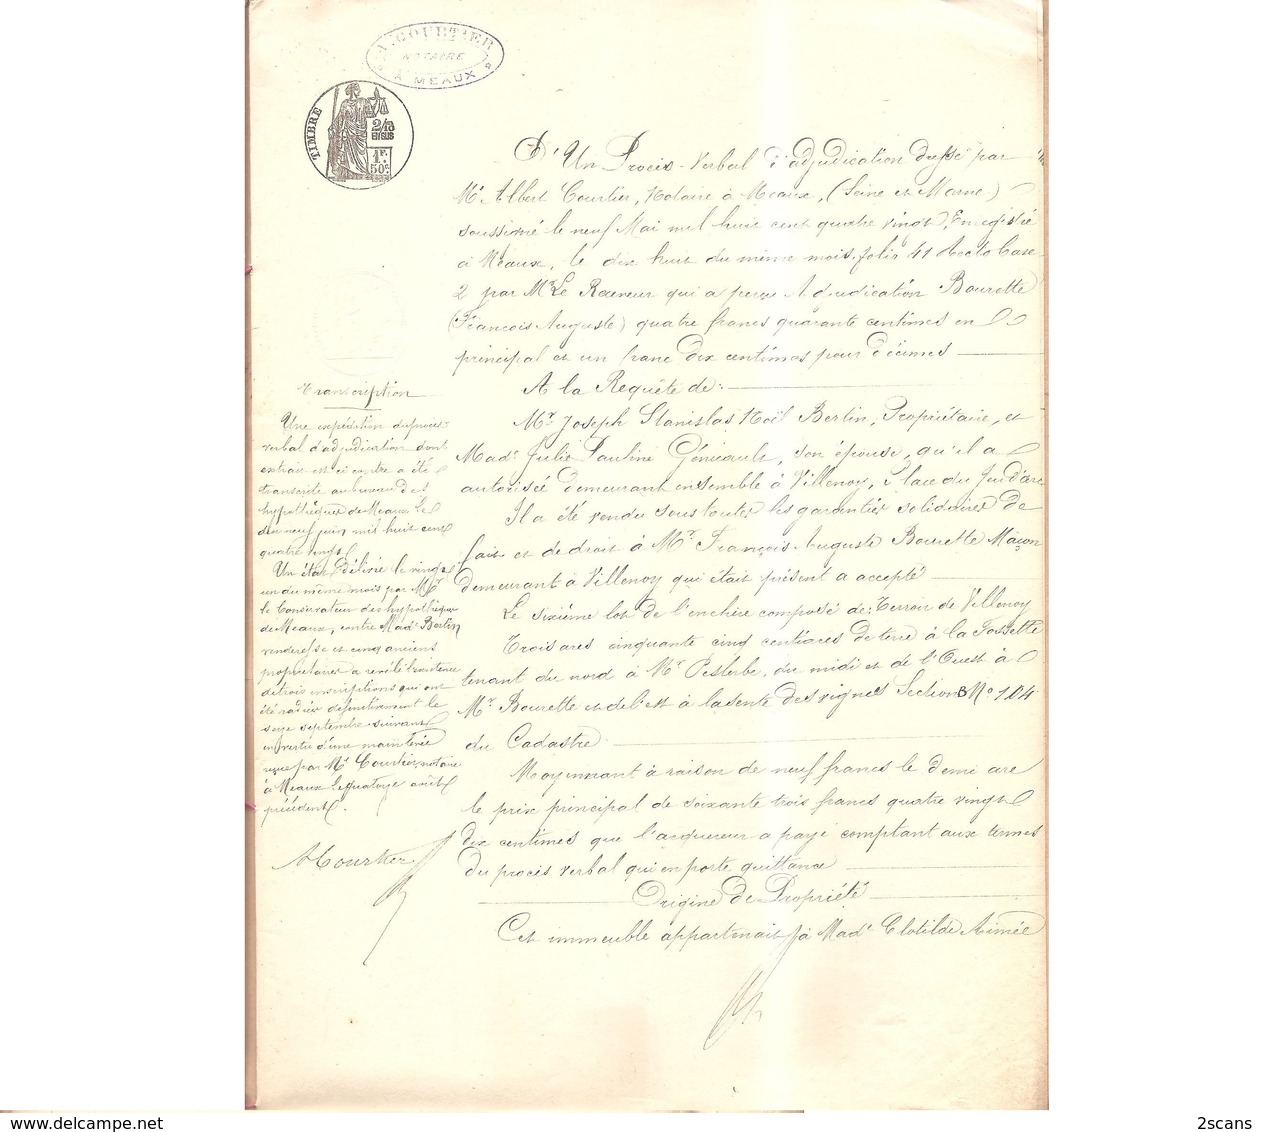 A. COURTIER
NOTAIRE
A MEAUX
TIMBRE
2/10
EN SUS
1F.
50c.
D'Un Procès-Verbal d'adjudication dressé par
Mr Albert Courtier, Notaire à Meaux, (Seine et Marne)
soussigné le neuf Mai mil huit cent quatre vingt, Enregistré
à Meaux, le dix huit du même mois, folio 41 Recto Case
2 par Mr Le Receveur qui a perçu Adjudication Bourette
(François Auguste) quatre francs quarante centimes en
principal et un franc dix centimes pour décimes
A la Requête de:
Mr Joseph Stanislas Noël Bertin, Propriétaire, et
Made Julie Pauline Génicault, son épouse, qu'il a
autorisée demeurant ensemble à Villenoy, Place du Jeu d'arc
Il a été vendu sous toutes les garanties solidaires de
fait et de droit à Mr François Auguste Bourette Maçon
demeurant à Villenoy qui était présent a accepté
Le sixième lot de l'enchère composé de: Terroir de Villenoy
Trois ares cinquante cinq centiares de terre à la Fossette
tenant du nord à Mr Pesterbe, du midi et de l'Ouest à
Mr Bourette et de l'est à la sente des vignes Section B No 104
du Cadastre
Moyennant à raison de neuf francs le demi are
le prix principal de soixante trois francs quatre vingt
dix centimes que l'acquereur a payé comptant aux termes
du procès verbal qui en porte quittance
Origine de Propriété
Cet immeuble appartenait à Made Clotilde Aimée
Transcription
Une expédition du procès
verbal d'adjudication dont
extrait est ci contre a été
transcrite au bureau des
hypothèques de Meaux le
dix neuf juin mil huit cent
quatre vingt
Un état délivré le vingt
un du même mois par Mr
le Conservateur des hypothèques
de Meaux, contre Made Bertin
venderesse et cinq anciens
propriétaires a révélé l'existence
de trois inscriptions qui ont
été radiées définitivement le
seize septembre suivant
en vertu d'une mainlevée
reçue par Mr Courtier, notaire
à Meaux le quatorze août
précédent.
A Courtier
2scans